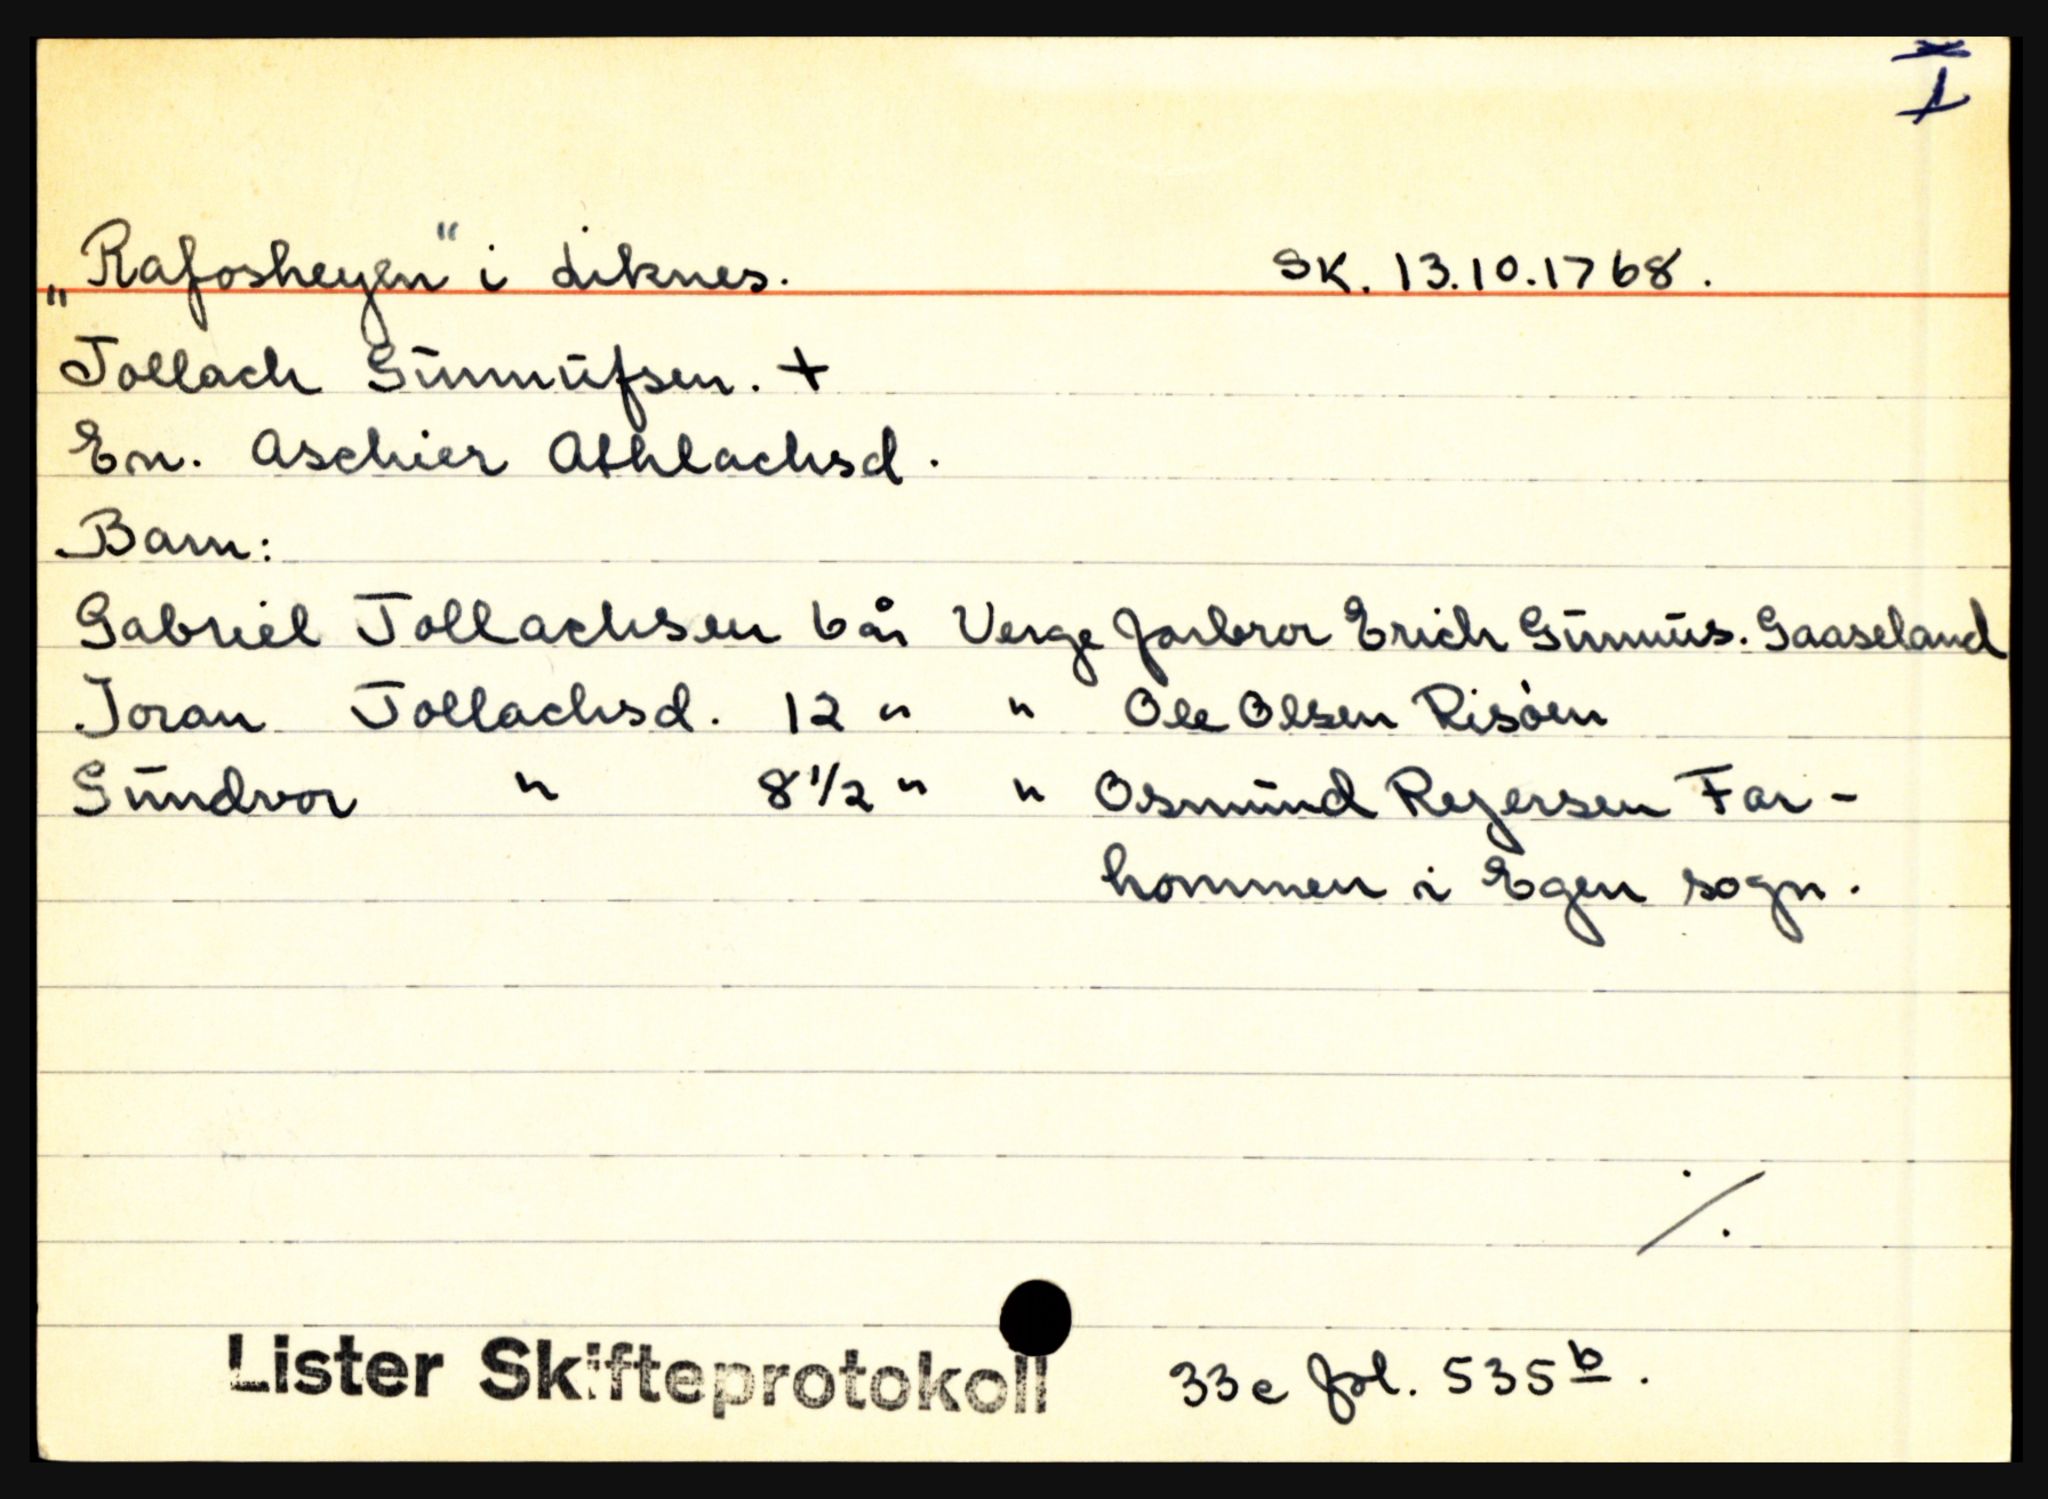 I
„Rafosheyen" i Liknes. SK. 13.10.1768.
Tollach Gunnufsen. +
En. Aschier Athlachsd.
Barn:
Gabriel Tollachsen 6 år Verge farbror Erich Gunnus. Gaaseland
Joran Tollachsd. 12 " " Ole Olsen Risøen
Gundvor " 8 1/2 " " Osmund Rejersen Far-
hommen i Egen sogn.
./.
Lister Skifteprotokoll 33c fol. 535 b.